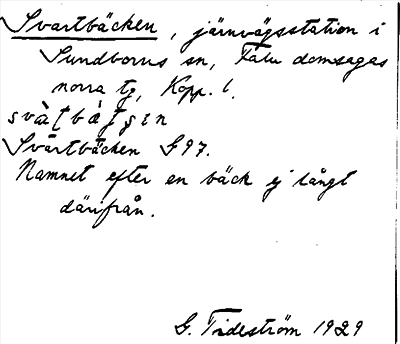 Svartbäcken, järnvägsstation i
Sundborns sn, Falu domsagas
norra tg, Kopp. l.
Svartbäcken G97.
Namnet efter en bäck ej långt
därifrån.
G. Tideström 1929